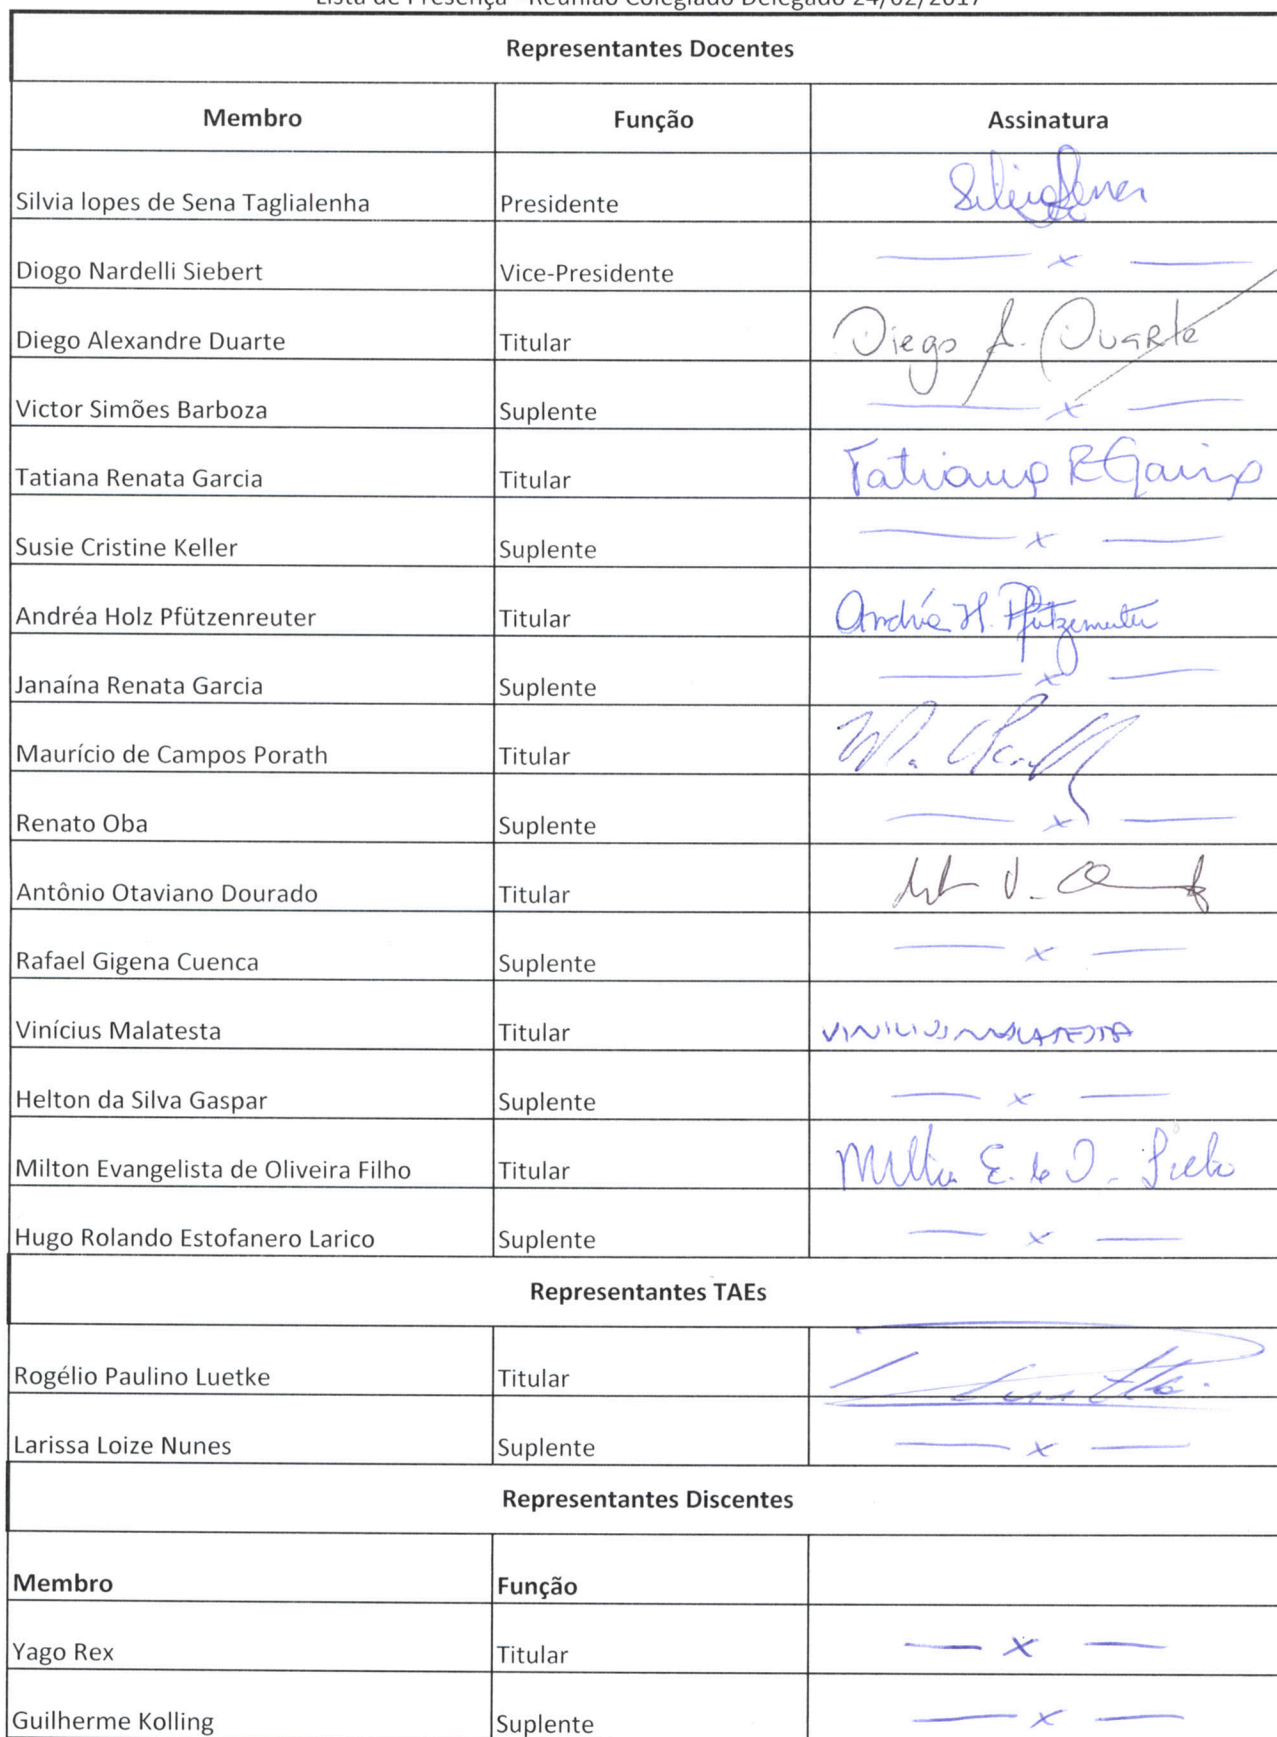 Lista de Presença - Reunião Colegiado Delegado 24/02/2017
Representantes Docentes
Membro Função Assinatura
Silvia lopes de Sena Taglialenha Presidente
Diogo Nardelli Siebert Vice-Presidente — x —
Diego Alexandre Duarte Titular Diego A. Duarte
Victor Simões Barboza Suplente — x —
Tatiana Renata Garcia Titular Tatiana R Garcia
Susie Cristine Keller Suplente — x —
Andréa Holz Pfützenreuter Titular Andréa H. Pfützenreuter
Janaína Renata Garcia Suplente — x —
Maurício de Campos Porath Titular
Renato Oba Suplente — x —
Antônio Otaviano Dourado Titular
Rafael Gigena Cuenca Suplente — x —
Vinícius Malatesta Titular VINICIUS MALATESTA
Helton da Silva Gaspar Suplente — x —
Milton Evangelista de Oliveira Filho Titular Milton E. de O. Filho
Hugo Rolando Estofanero Larico Suplente — x —
Representantes TAEs
Rogélio Paulino Luetke Titular
Larissa Loize Nunes Suplente — x —
Representantes Discentes
Membro Função
Yago Rex Titular — x —
Guilherme Kolling Suplente — x —